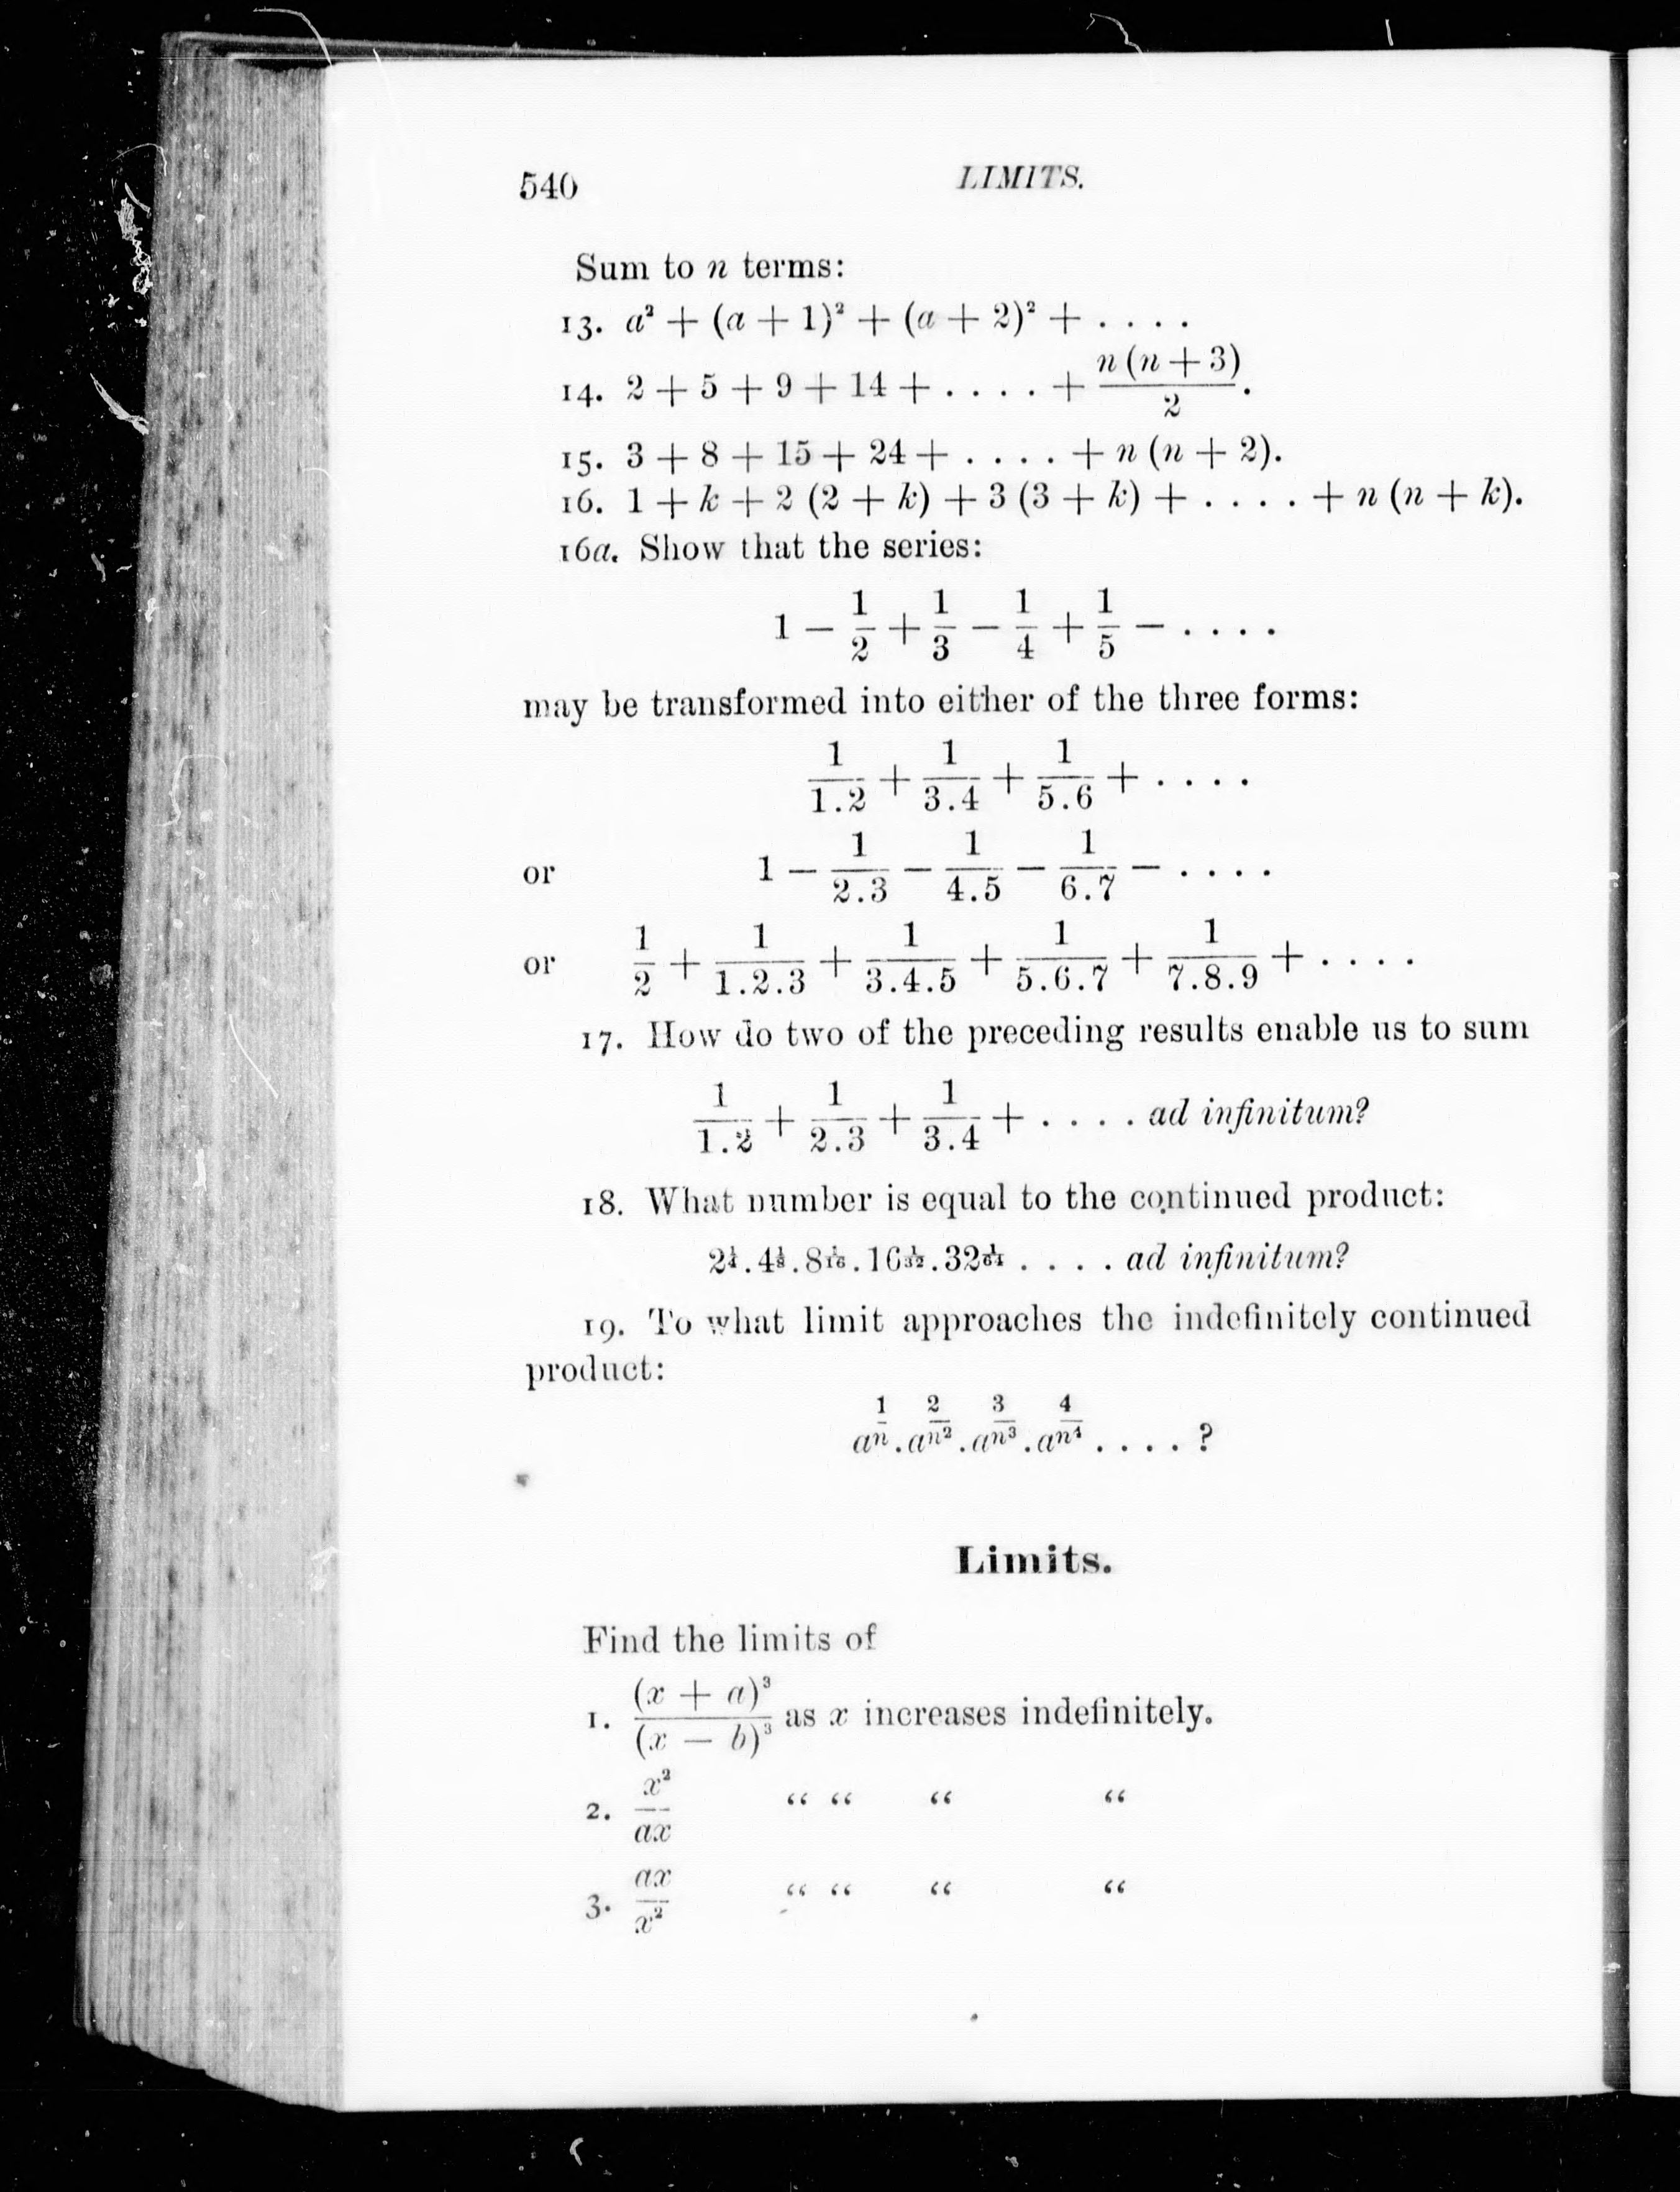 540 LIMITS.
Sum to n terms:
13. a² + (a + 1)² + (a + 2)² + . . . .
14. 2 + 5 + 9 + 14 + . . . . + n (n + 3)/2.
15. 3 + 8 + 15 + 24 + . . . . + n (n + 2).
16. 1 + k + 2 (2 + k) + 3 (3 + k) + . . . . + n (n + k).
16a. Show that the series:
1 − 1/2 + 1/3 − 1/4 + 1/5 − . . . .
may be transformed into either of the three forms:
1/1.2 + 1/3.4 + 1/5.6 + . . . .
or 1 − 1/2.3 − 1/4.5 − 1/6.7 − . . . .
or 1/2 + 1/1.2.3 + 1/3.4.5 + 1/5.6.7 + 1/7.8.9 + . . . .
17. How do two of the preceding results enable us to sum
1/1.2 + 1/2.3 + 1/3.4 + . . . . ad infinitum?
18. What number is equal to the continued product:
2^(1/4) . 4^(1/8) . 8^(1/16) . 16^(1/32) . 32^(1/64) . . . . ad infinitum?
19. To what limit approaches the indefinitely continued
product:
a^(1/n) . a^(2/n²) . a^(3/n³) . a^(4/n⁴) . . . . ?
Limits.
Find the limits of
1. (x + a)³/(x − b)³ as x increases indefinitely.
2. x²/ax “ “ “ “
3. ax/x² “ “ “ “